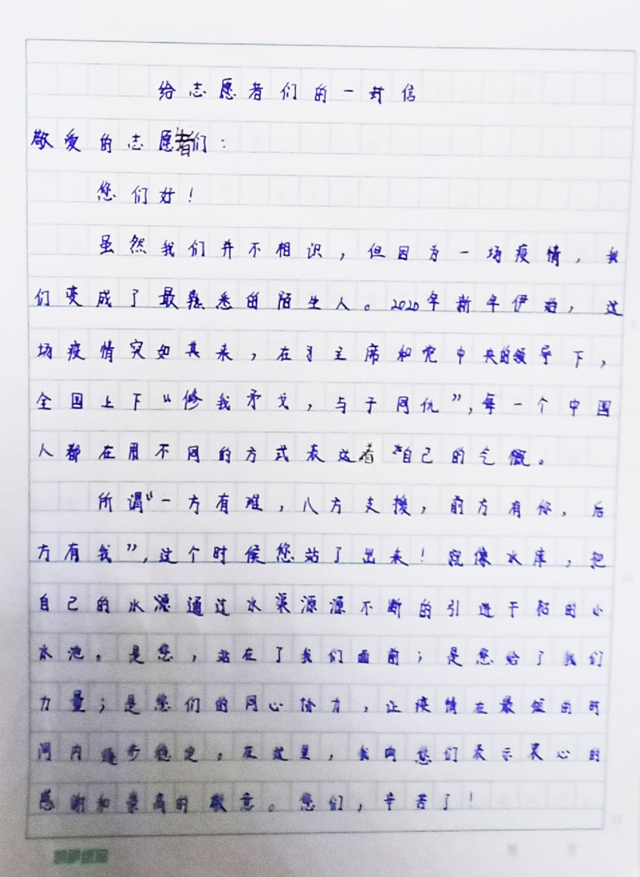 给志愿者们的一封信
敬爱的志愿者们：
您们好！
虽然我们并不相识，但因为一场疫情，我
们变成了最熟悉的陌生人。2020年新年伊始，这
场疫情突如其来，在习主席和党中央的领导下，
全国上下“修我矛戈，与子同仇”，每一个中国
人都在用不同的方式表达着自己的气慨。
所谓“一方有难，八方支援，前方有你，后
方有我”，这个时候您站了出来！就像水库，把
自己的水源通过水渠源源不断的引进干枯的小
水池。是您，站在了我们面前；是您给了我们
力量；是您们的同心协力，让疫情在最短的时
间内逐步稳定。在这里，我向您们表示衷心的
感谢和崇高的敬意。您们，辛苦了！